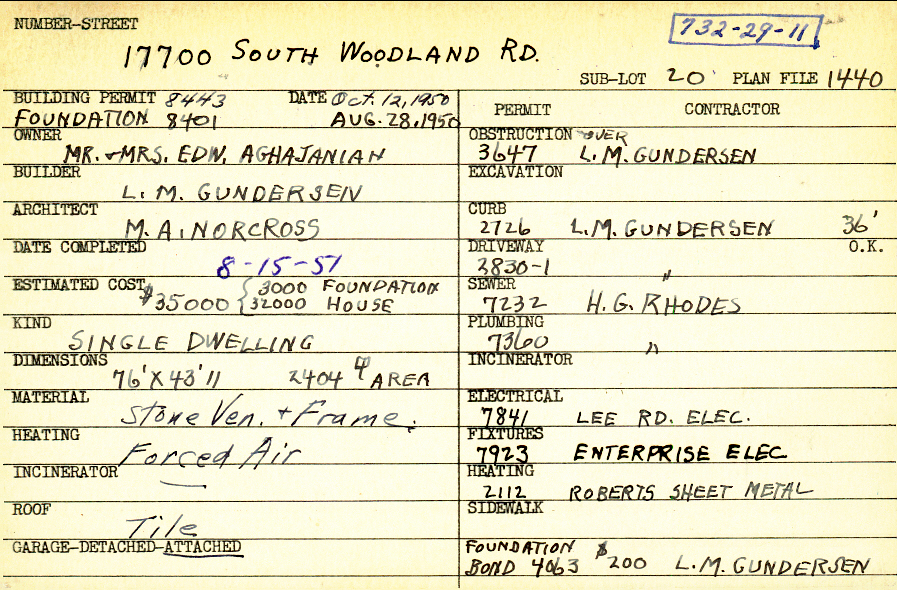 NUMBER-STREET
732-29-11
17700 SOUTH WOODLAND RD.
SUB-LOT 20' PLAN FILE 1440
BUILDING PERMIT 8443 DATE Oct. 12, 1950
FOUNDATION 8401 AUG. 28, 1950
OWNER
MR. & MRS. EDW. AGHAJANIAN
BUILDER
L. M. GUNDERSEN
ARCHITECT
M. A. NORCROSS
DATE COMPLETED
8-15-51
ESTIMATED COST $35000 { 3000 FOUNDATION
32000 HOUSE
KIND
SINGLE DWELLING
DIMENSIONS
76' X 43' 11 2404 AREA
MATERIAL
Stone Ven. + Frame.
HEATING
Forced Air
INCINERATOR
ROOF
Tile
GARAGE-DETACHED-ATTACHED
PERMIT CONTRACTOR
OBSTRUCTION OVER
3647 L. M. GUNDERSEN
EXCAVATION
CURB
2726 L. M. GUNDERSEN 36'
DRIVEWAY O.K.
2830-1 "
SEWER
7232 H. G. RHODES
PLUMBING
7360 "
INCINERATOR
ELECTRICAL
7841 LEE RD. ELEC.
FIXTURES
7923 ENTERPRISE ELEC
HEATING
2112 ROBERTS SHEET METAL
SIDEWALK
FOUNDATION
BOND 4063 $200 L. M. GUNDERSEN